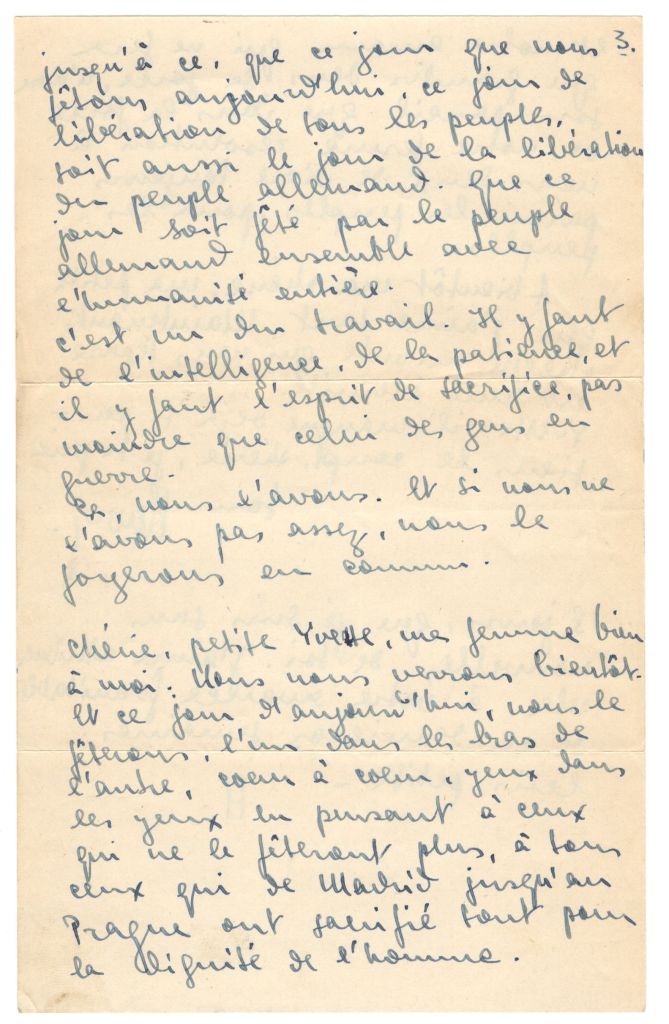 3.
jusqu'à ce, que ce jour que nous
fêtons aujourd'hui, ce jour de
libération de tous les peuples,
soit aussi le jour de la libération
du peuple allemand. Que ce
jour soit fêté par le peuple
allemand ensemble avec
l'humanité entière.
c'est un dur travail. Il y faut
de l'intelligence, de la patience, et
il y faut l'esprit de sacrifice, pas
moindre que celui des gens en
guerre.
ça, nous l'avons. Et si nous ne
l'avons pas assez, nous le
forgerons en commun.
Chérie, petite Yvette, ma femme bien
à moi. Nous nous verrons bientôt.
Et ce jour d'aujourd'hui, nous le
fêterons, l'un dans les bras de
l'autre, coeur à coeur, yeux dans
les yeux en pensant à ceux
qui ne le fêteront plus, à tous
ceux qui de Madrid jusqu'au
Prague ont sacrifié tout pour
la dignité de l'homme.